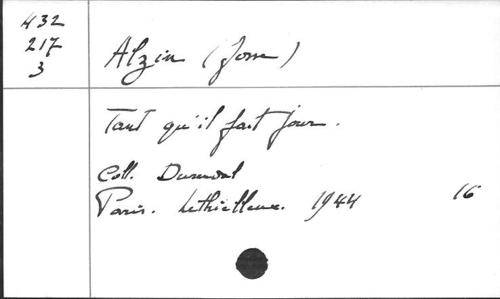 432
217
3
Alzin (Josse)
Tant qu'il fait jour.
Coll. Durendal
Paris. Lethielleux. 1944 16